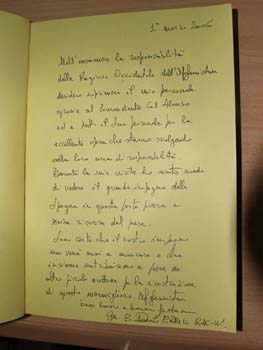 1° marzo 2006
Nell'assumere la responsabilità
della Regione Occidentale dell'Afghanistan
desidero esprimere il mio personale
grazie al Comandante Col Alonso
ed a tutto il Suo personale per la
eccellente opera che stanno svolgendo
nella loro area di responsabilità
Durante la mia visita ho avuto modo
di vedere il grande impegno della
Spagna in questa parte povera e
senza risorse del paese.
Sono certo che il vostro impegno
non verrà mai a mancare e che
insieme contribuiremo a porre un
altro piccolo mattone per la ricostruzione
di questo meraviglioso Afghanistan
buon lavoro e buona fortuna
RAC-W